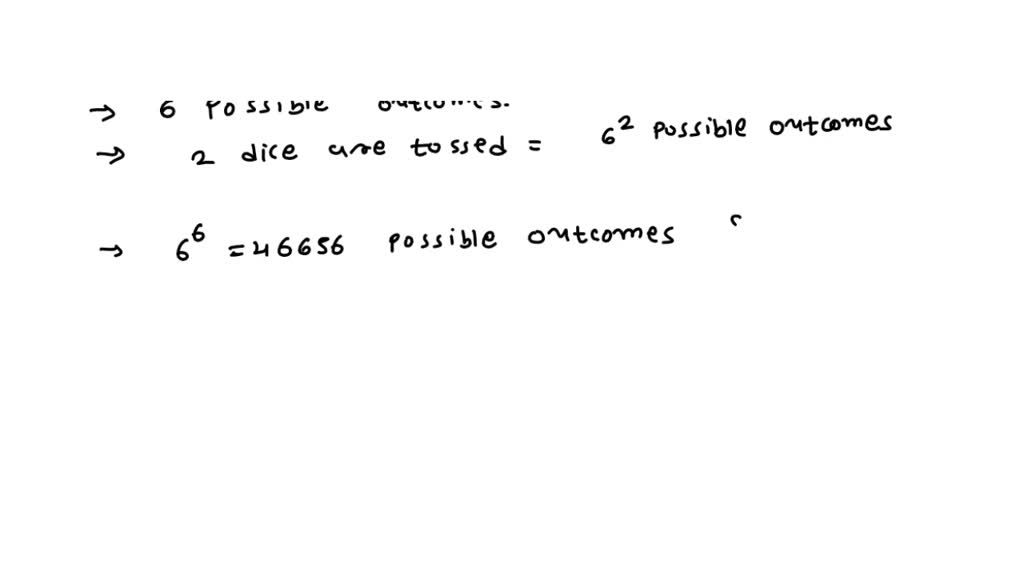 → 6 possible outcomes.
→ 2 dice are tossed = 6² possible outcomes
→ 6⁶ = 46656 possible outcomes